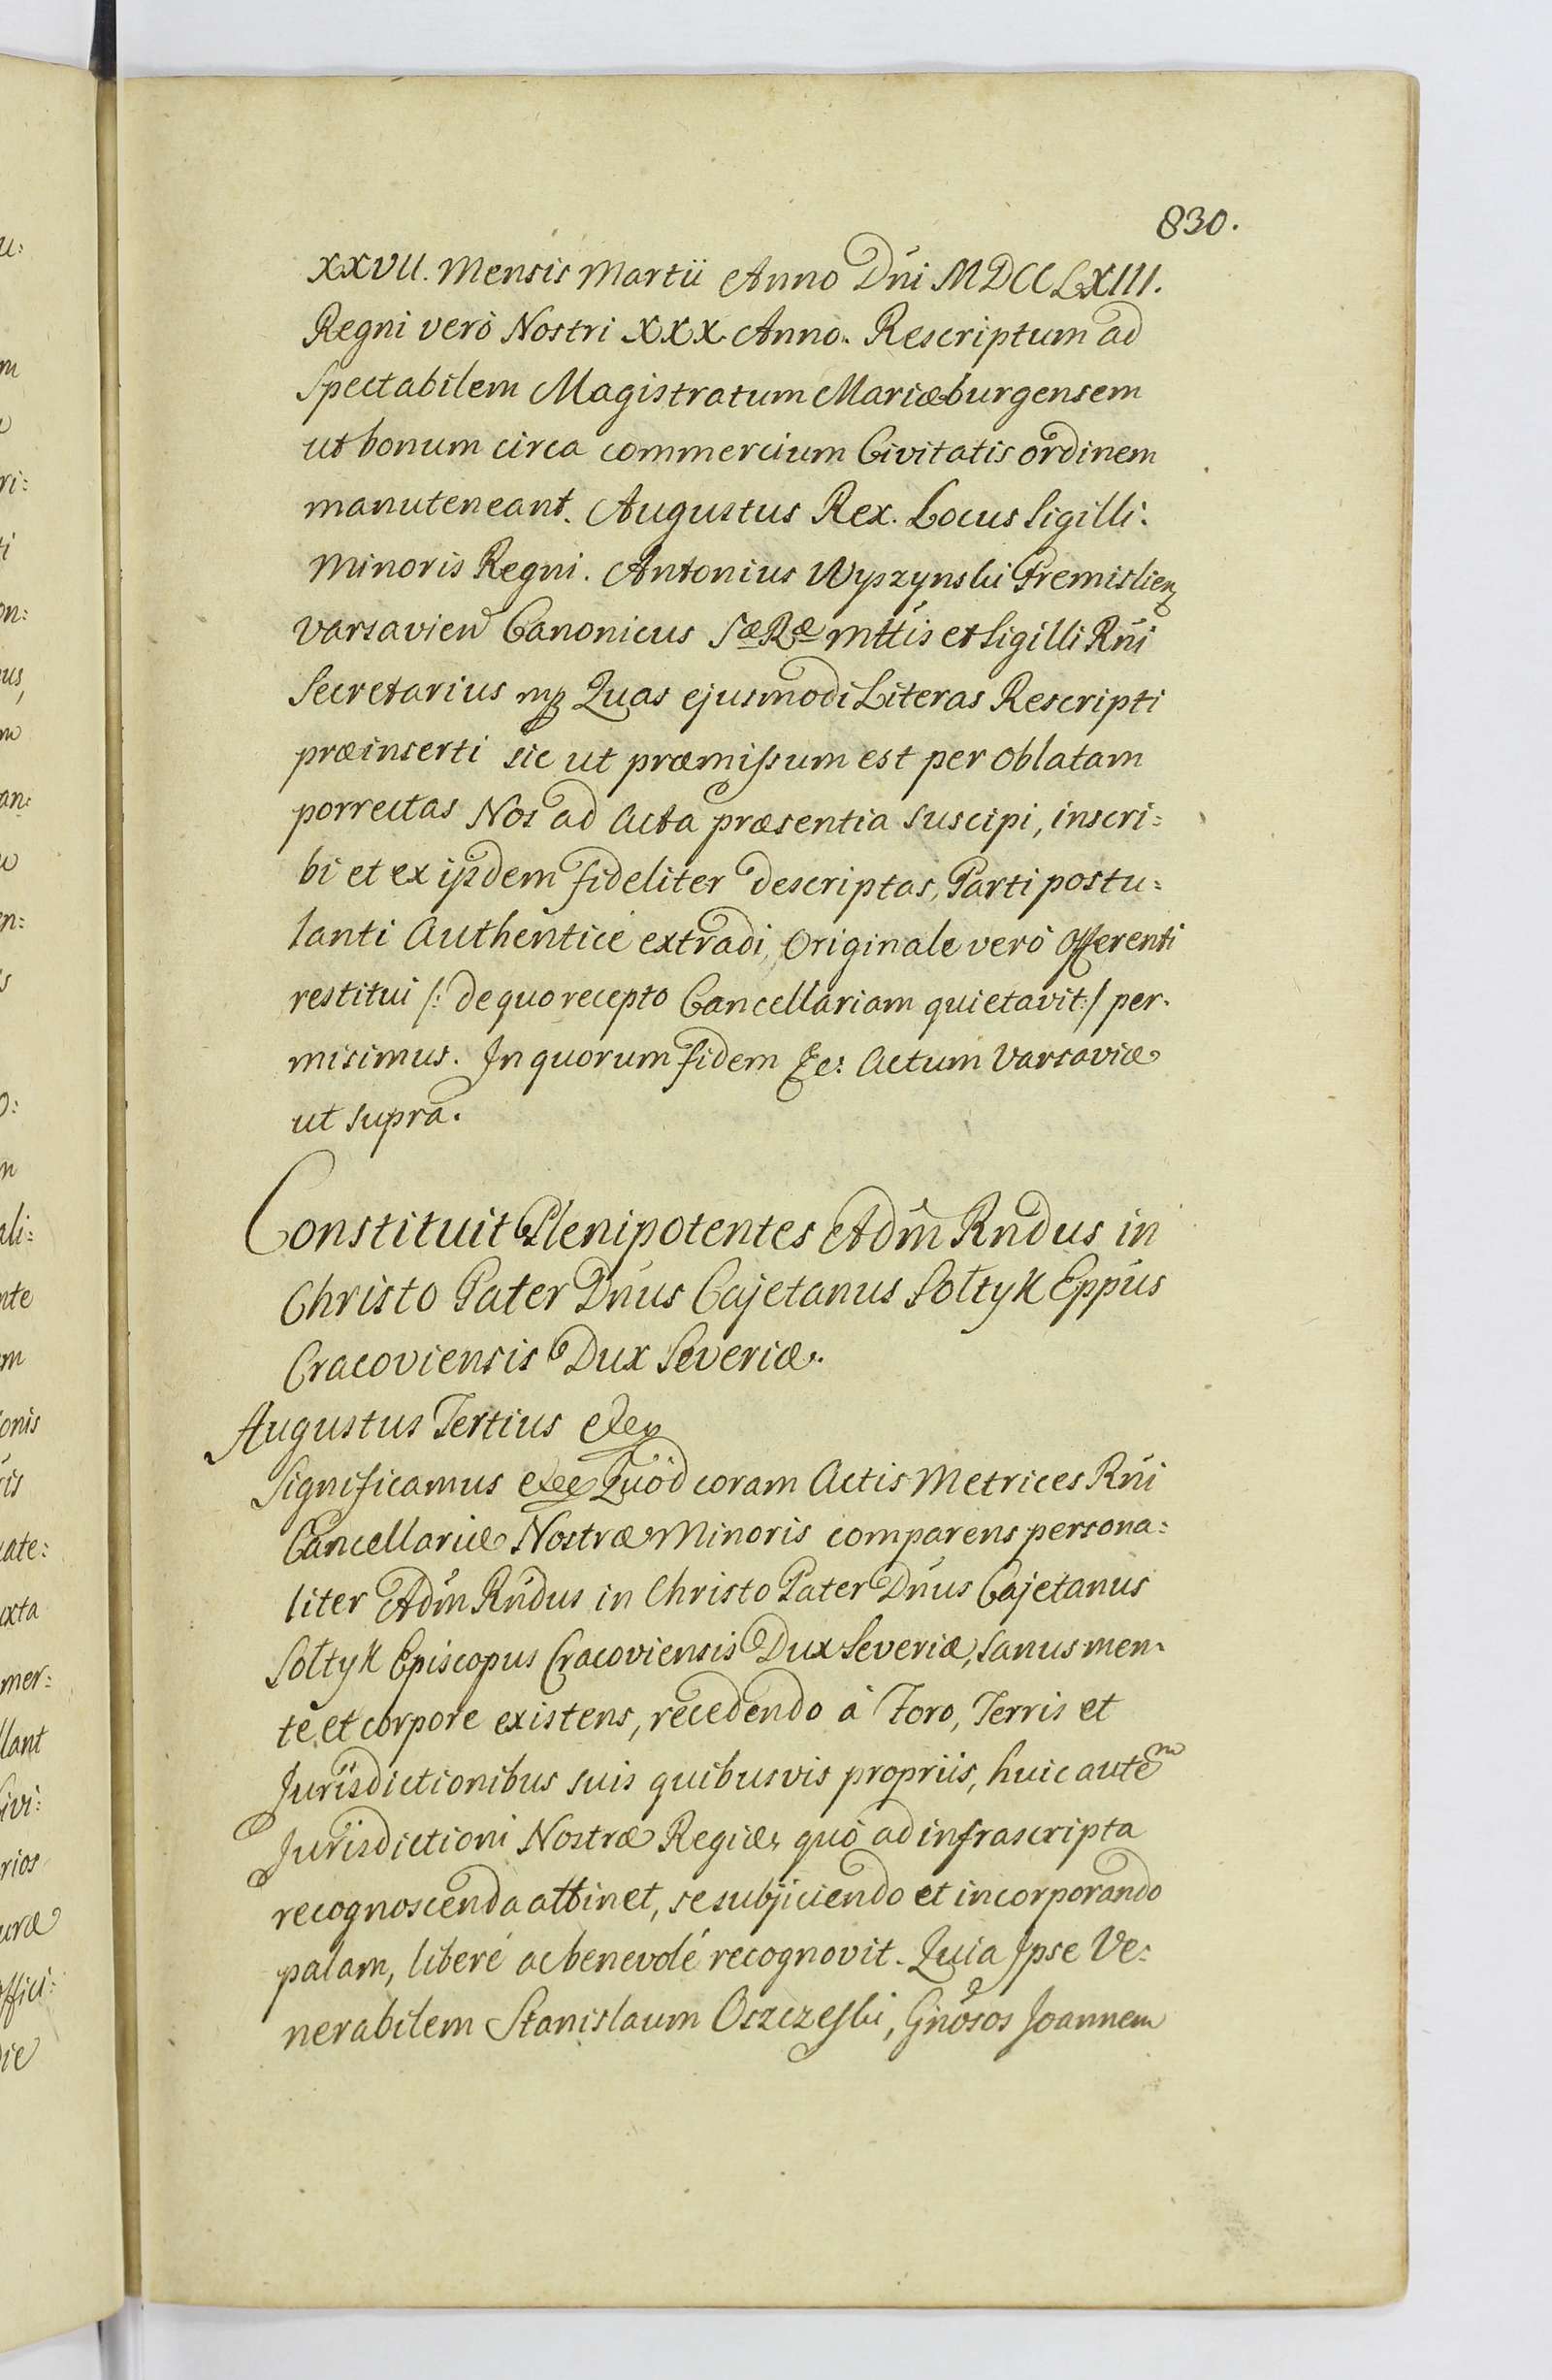 830.
XXVII. Mensis Martii Anno Dni MDCCLXIII.
Regni verò Nostri XXX Anno. Rescriptum ad
Spectabilem Magistratum Mariæburgensem
ut bonum circa commercium Civitatis ordinem
manuteneant. Augustus Rex. Locus Sigilli.
Minoris Regni. Antonius Wyszynski Premislien
Varsavien Canonicus Sæ Ræ Mttis et Sigilli Rni
Secretarius mp Quas ejusmodi Literas Rescripti
præinserti sic ut præmissum est per Oblatam
porrectas Nos ad Acta præsentia suscipi, inscri=
bi et ex ijsdem fideliter descriptas, Parti postu=
lanti Authenticè extradi, Originale verò Offerenti
restitui /: de quo recepto Cancellariam quietavit :/ per=
misimus. In quorum fidem &c: Actum Varsaviæ
ut supra.
Constituit Plenipotentes Adm Rndus in
Christo Pater Dnus Cajetanus Sołtyk Eppus
Cracoviensis Dux Severiæ.
Augustus Tertius etc
Significamus etc Quod coram Actis Metrices Rni
Cancellariæ Nostræ Minoris comparens persona=
liter Adm Rndus in Christo Pater Dnus Cajetanus
Sołtyk Episcopus Cracoviensis Dux Severiæ, sanus men=
te et corpore existens, recedendo à Foro, Terris et
Jurisdictionibus suis quibusvis propriis, huic autem
Jurisdictioni Nostræ Regiæ, quò ad infrascripta
recognoscenda attinet, se subjiciendo et incorporando
palam, liberé ac benevolé recognovit. Quia Ipse Ve=
nerabilem Stanislaum Oszczeski, Gnosos Joannem